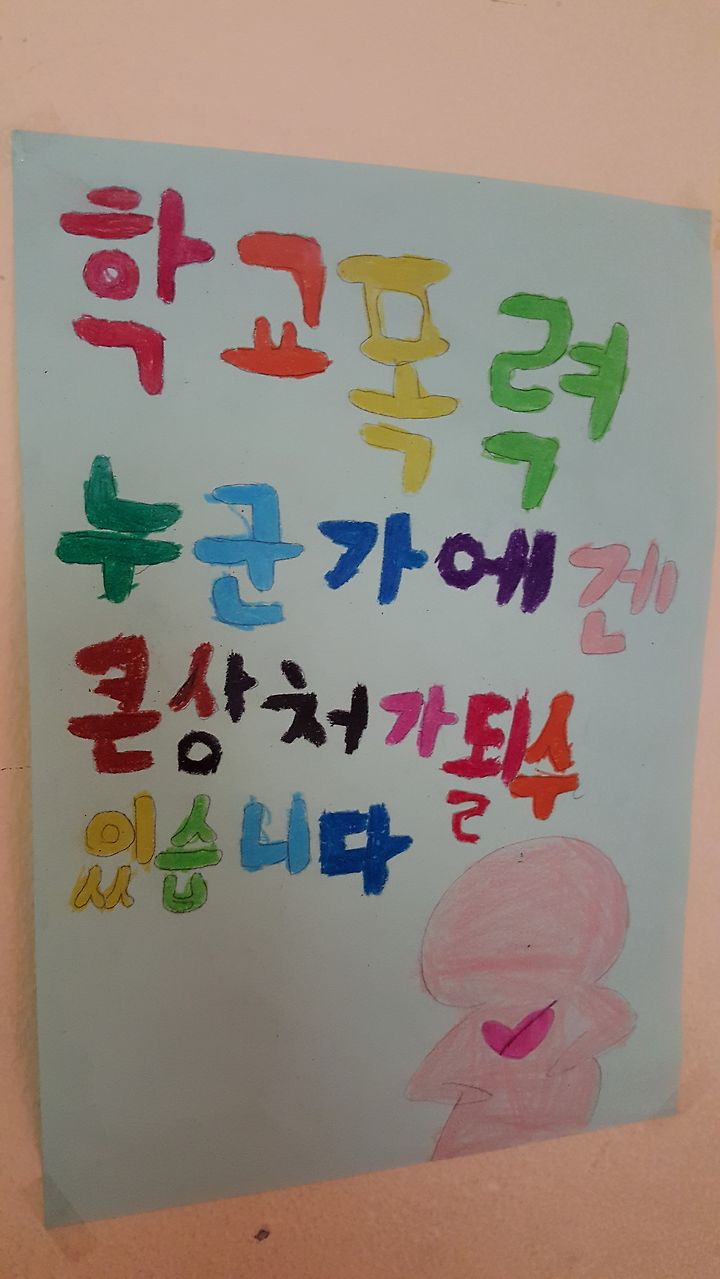 학교폭력
누군가에겐
큰상처가될수
있습니다